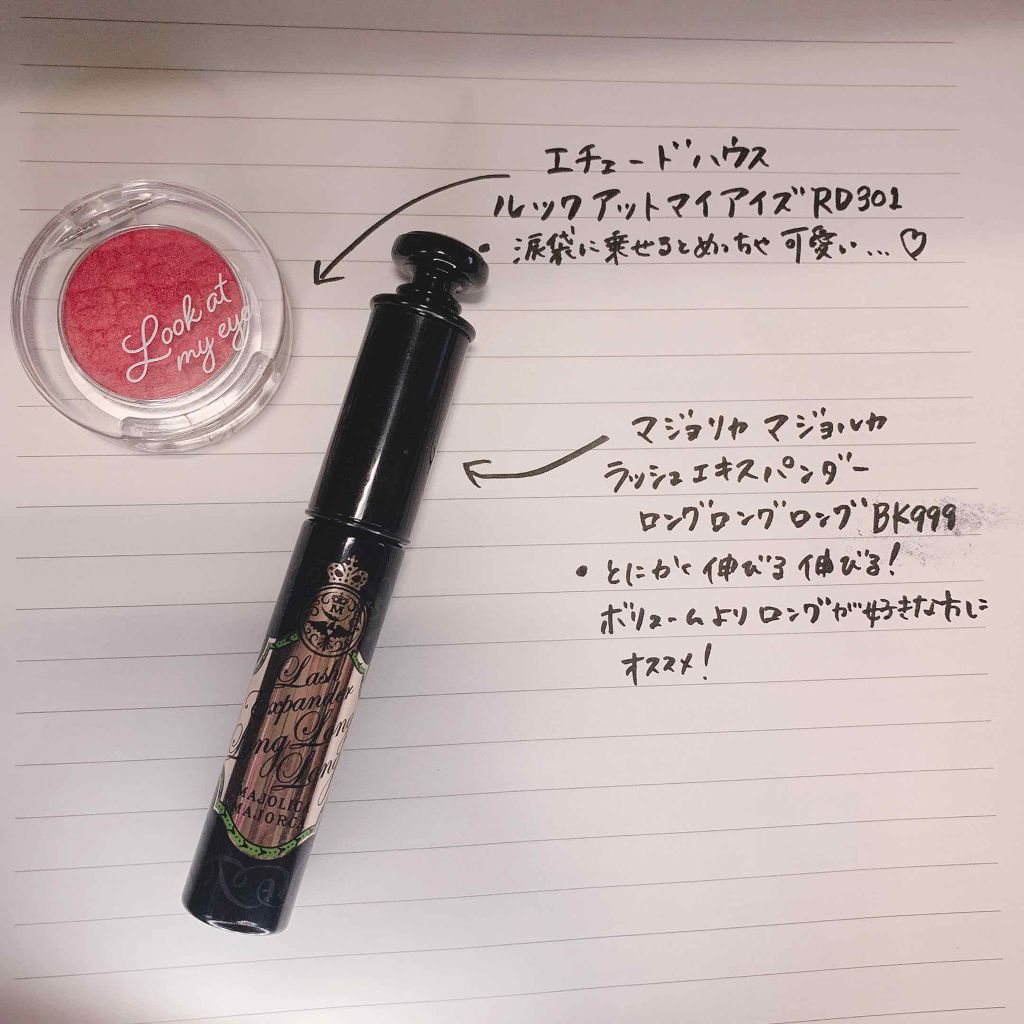 エチュードハウス
ルックアットマイアイズRD301
・涙袋に乗せるとめっちゃ可愛い...♡
Look at
my eyes
マジョリカ マジョルカ
ラッシュエキスパンダー
ロングロングロングBK999
・とにかく伸びる伸びる!
ボリュームよりロングが好きな方に
オススメ!
M
Lash
Expander
Long Long
Long
MAJOLICA
MAJORCA